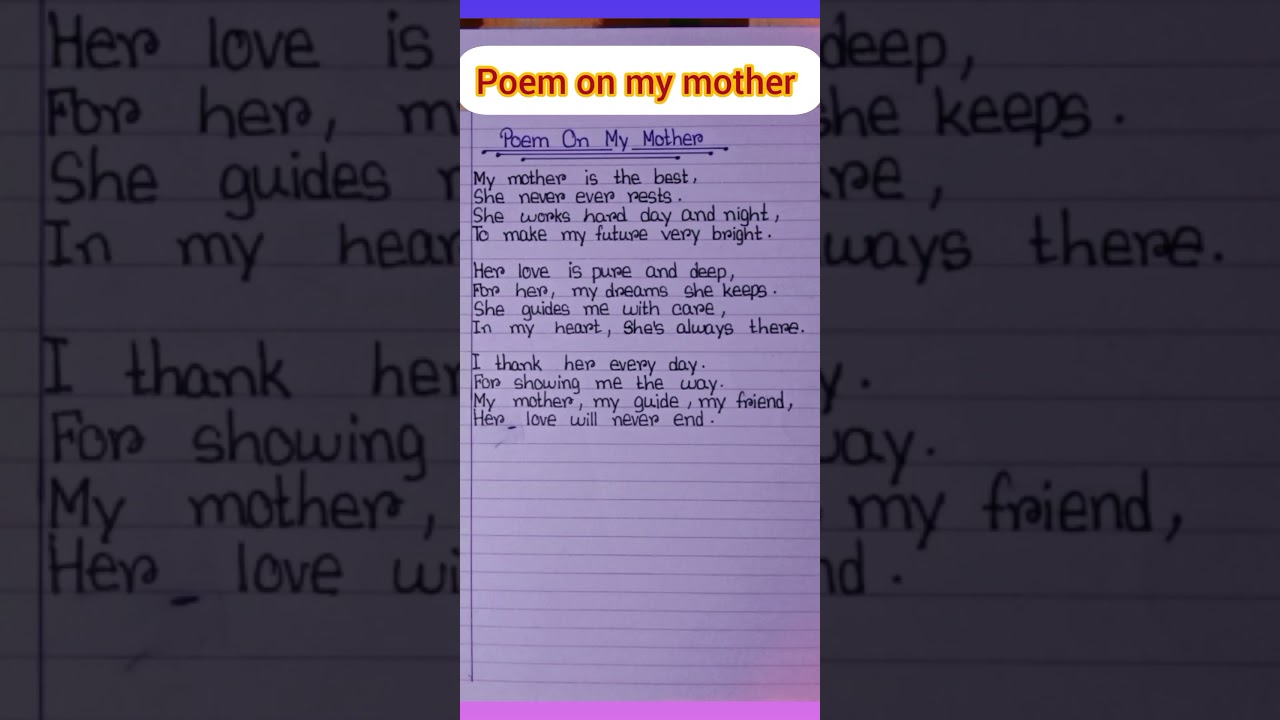 Poem on my mother
Poem On My Mother
My mother is the best,
She never ever rests.
She works hard day and night,
To make my future very bright.
Her love is pure and deep,
For her, my dreams she keeps.
She guides me with care,
In my heart, She's always there.
I thank her every day.
For showing me the way.
My mother, my guide, my friend,
Her_ love will never end.